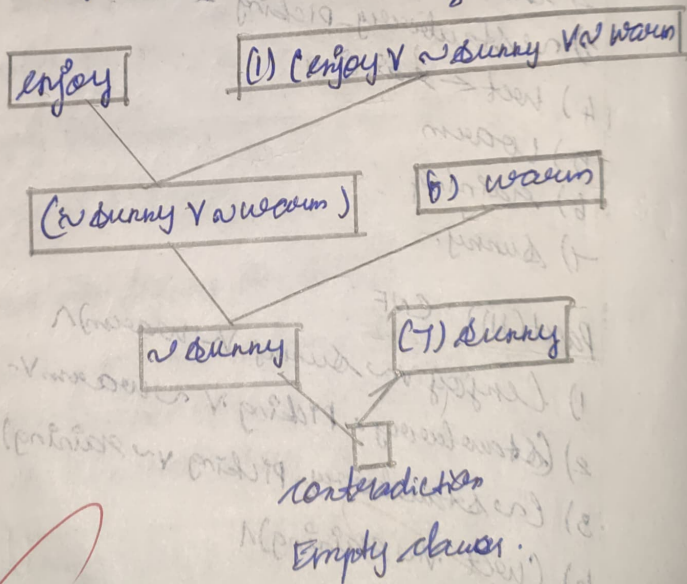 enjoy
(1) (enjoy V ~ sunny V ~ warm
(~ sunny V ~ warm)
6) warm
~ sunny
(7) sunny
contradiction
Empty clause.